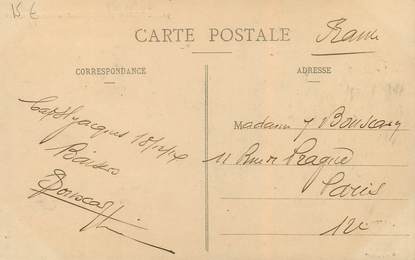 15 €
CARTE POSTALE
France
CORRESPONDANCE
ADRESSE
Cap St Jacques 18/2/14
Baisers
Madame J Bousca
11 Rue de Prague
Paris
12e